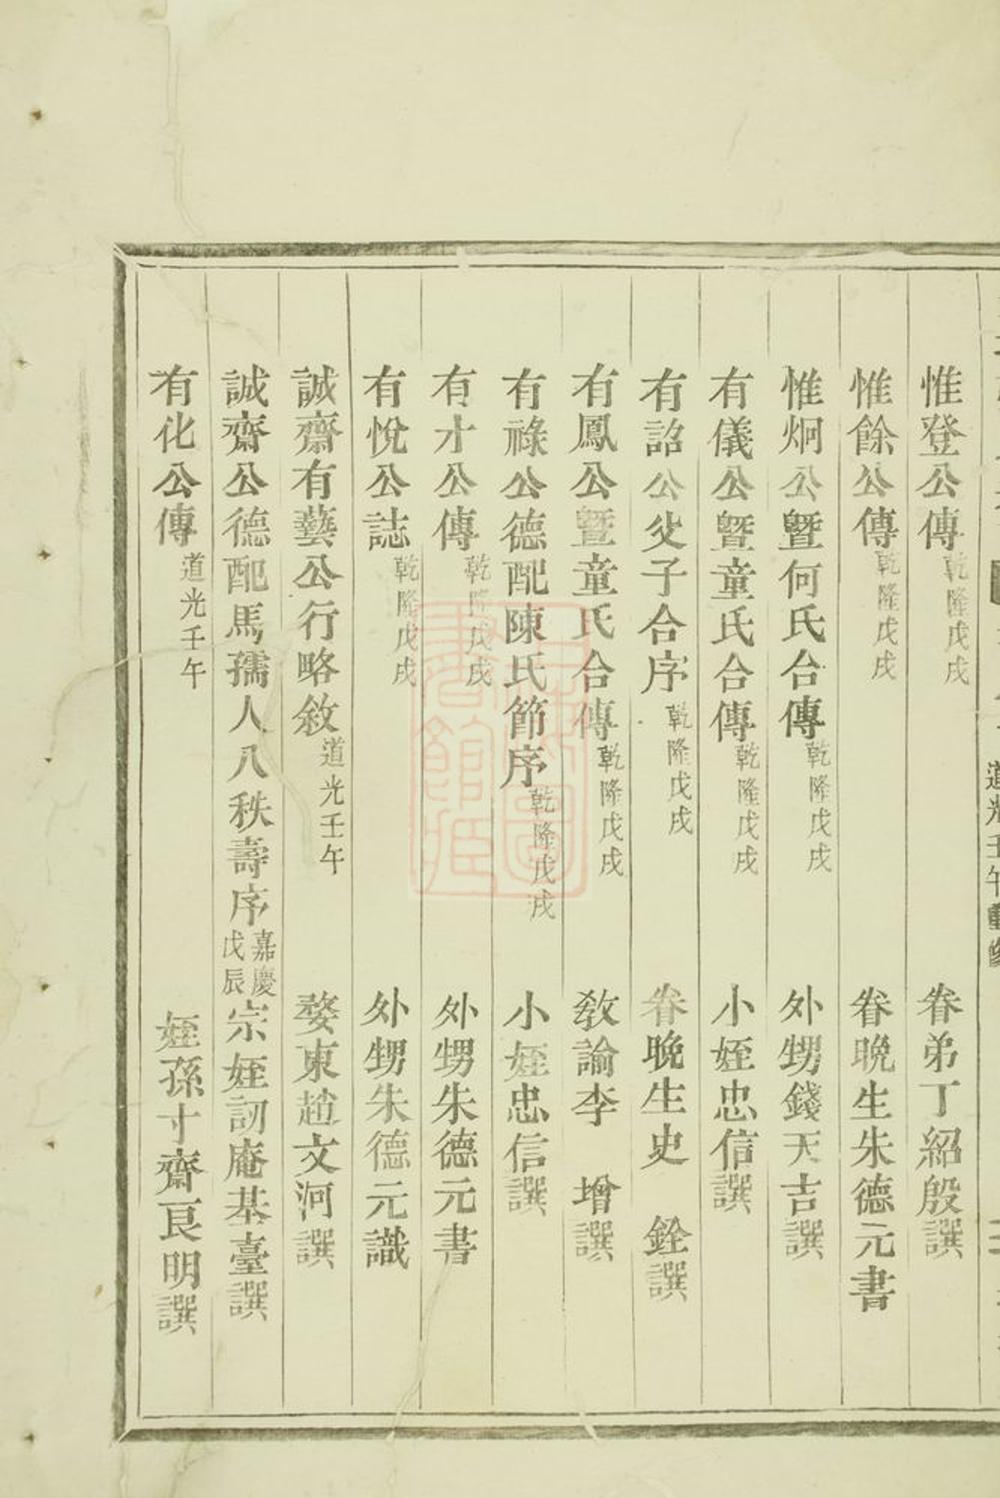 道光壬午重修
惟登公傳乾隆戊戌 眷弟丁紹殷譔
惟餘公傳乾隆戊戌 眷晚生朱德元書
惟炯公暨何氏合傳乾隆戊戌 外甥錢天吉譔
有儀公暨童氏合傳乾隆戊戌 小姪忠信譔
有詔公父子合序乾隆戊戌 眷晚生史 銓譔
有鳳公暨童氏合傳乾隆戊戌 教諭李 增譔
有祿公德配陳氏節序乾隆戊戌 小姪忠信譔
有才公傳乾隆戊戌 外甥朱德元書
有悅公誌乾隆戊戌 外甥朱德元識
誠齋有藝公行略敘道光壬午 婺東趙文河譔
誠齋公德配馬孺人八秩壽序嘉慶戊辰 宗姪訒庵基臺譔
有化公傳道光壬午 姪孫寸齋良明譔